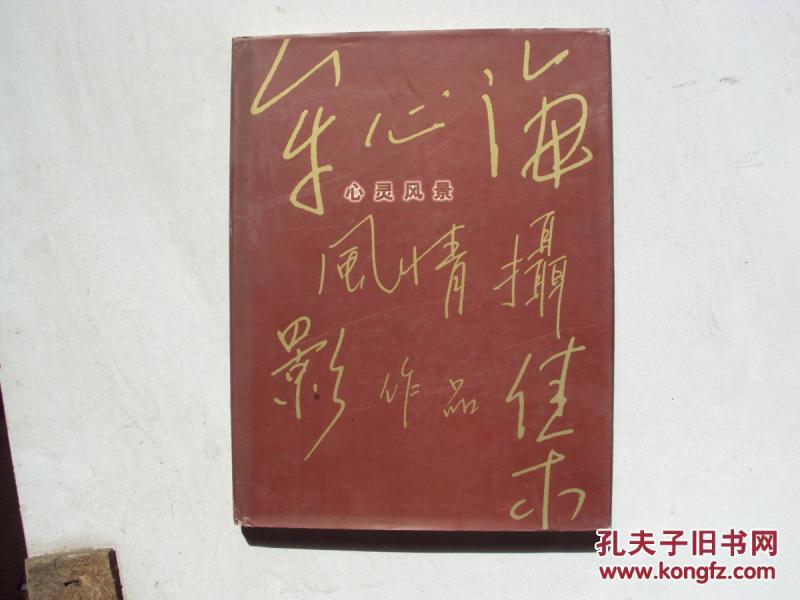 牟心海
心灵风景
風情攝
影作品
佳木
孔夫子旧书网
www.kongfz.com